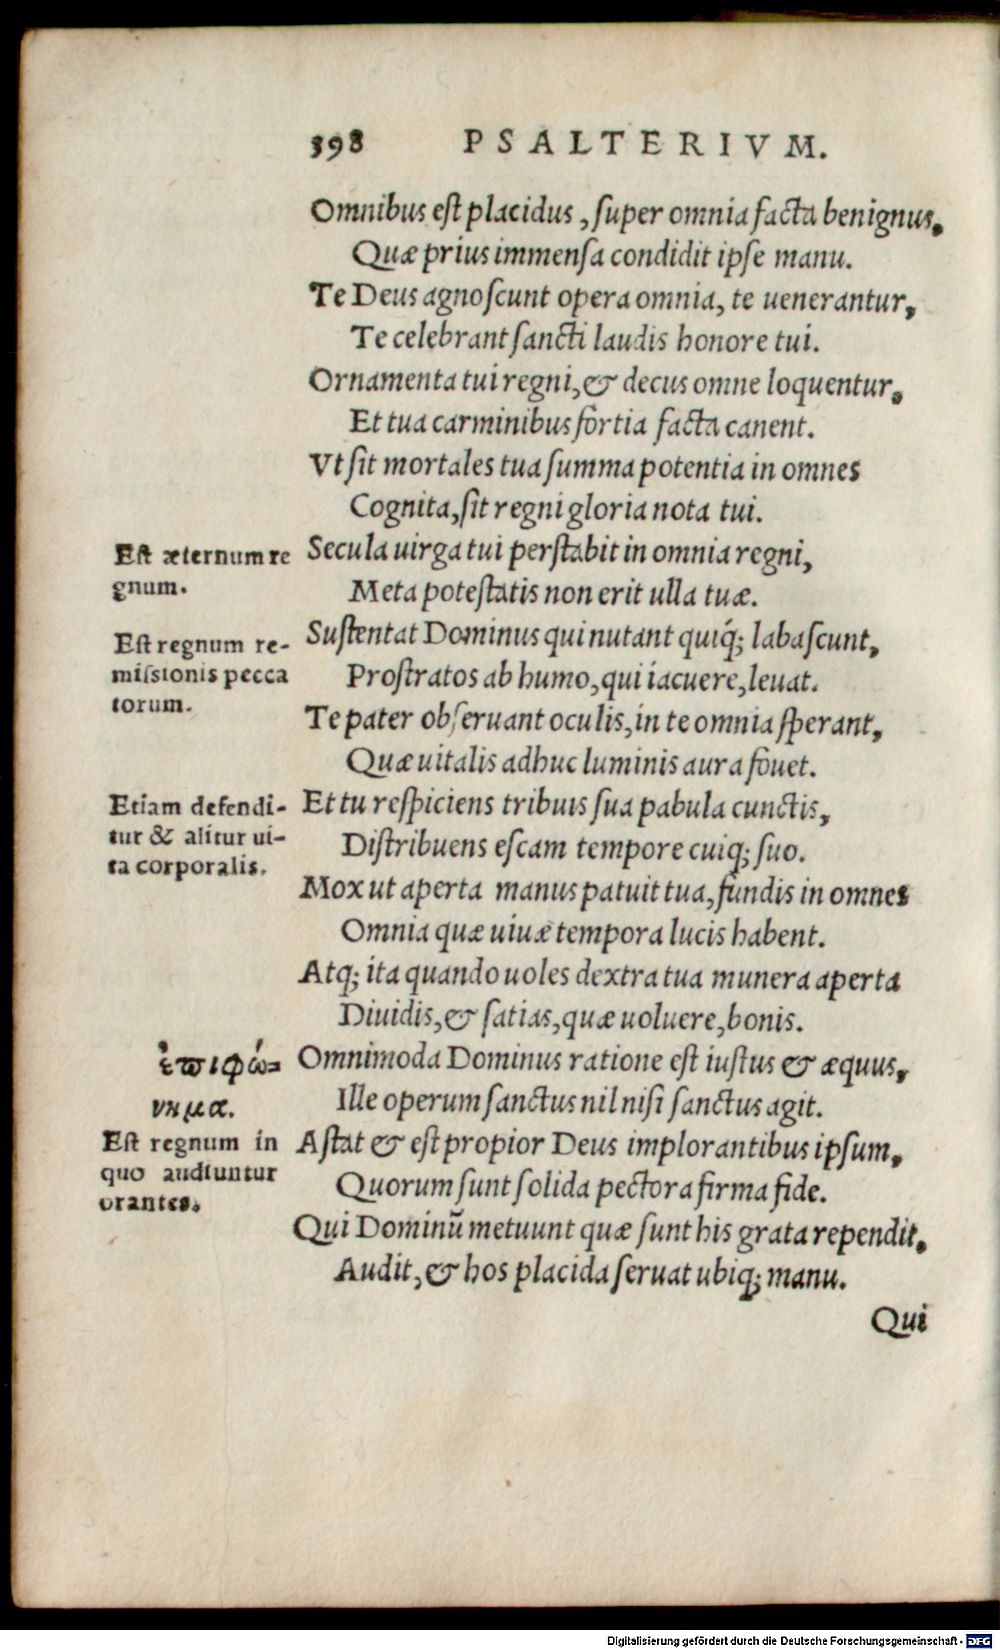 398 PSALTERIVM.
Omnibus est placidus, super omnia facta benignus,
Quæ prius immensa condidit ipse manu.
Te Deus agnoscunt opera omnia, te uenerantur,
Te celebrant sancti laudis honore tui.
Ornamenta tui regni, & decus omne loquentur,
Et tua carminibus fortia facta canent.
Vt sit mortales tua summa potentia in omnes
Cognita, sit regni gloria nota tui.
Est æternum re
gnum.
Secula uirga tui perstabit in omnia regni,
Meta potestatis non erit ulla tuæ.
Est regnum re-
missionis pecca
torum.
Sustentat Dominus qui nutant quiq́; labascunt,
Prostratos ab humo, qui iacuere, leuat.
Te pater obseruant oculis, in te omnia sperant,
Quæ uitalis adhuc luminis aura fouet.
Etiam defendi-
tur & alitur ui-
ta corporalis.
Et tu respiciens tribuis sua pabula cunctis,
Distribuens escam tempore cuiq; suo.
Mox ut aperta manus patuit tua, fundis in omnes
Omnia quæ uiuæ tempora lucis habent.
Atq; ita quando uoles dextra tua munera aperta
Diuidis, & satias, quæ uoluere, bonis.
ἐπιφώ-
νημα.
Omnimoda Dominus ratione est iustus & æquus,
Ille operum sanctus nil nisi sanctus agit.
Est regnum in
quo audiuntur
orantes.
Astat & est propior Deus implorantibus ipsum,
Quorum sunt solida pectora firma fide.
Qui Dominũ metuunt quæ sunt his grata rependit,
Audit, & hos placida seruat ubiq; manu.
Qui
Digitalisierung gefördert durch die Deutsche Forschungsgemeinschaft - DFG